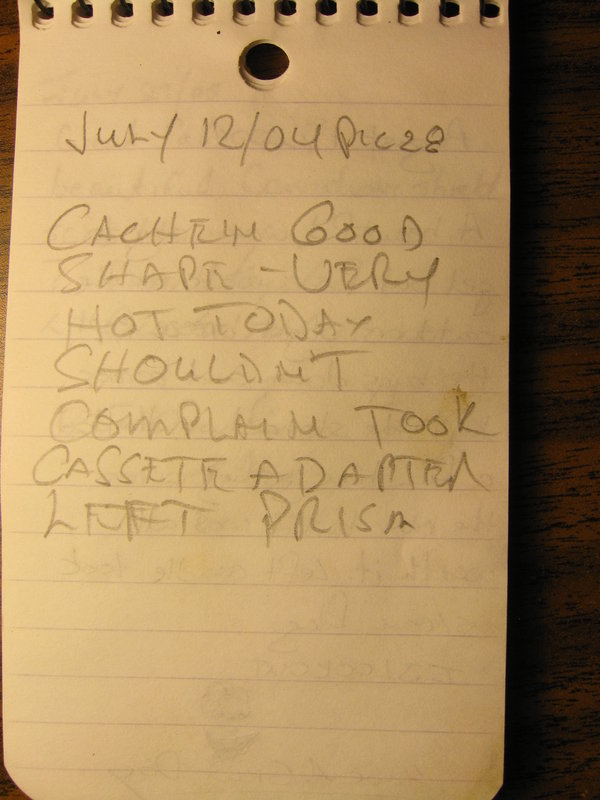 JULY 12/04 PIC 28
CACHE IN GOOD
SHAPE - VERY
HOT TODAY
SHOULDN'T
COMPLAIN TOOK
CASSETE ADAPTER
LEFT PRISM